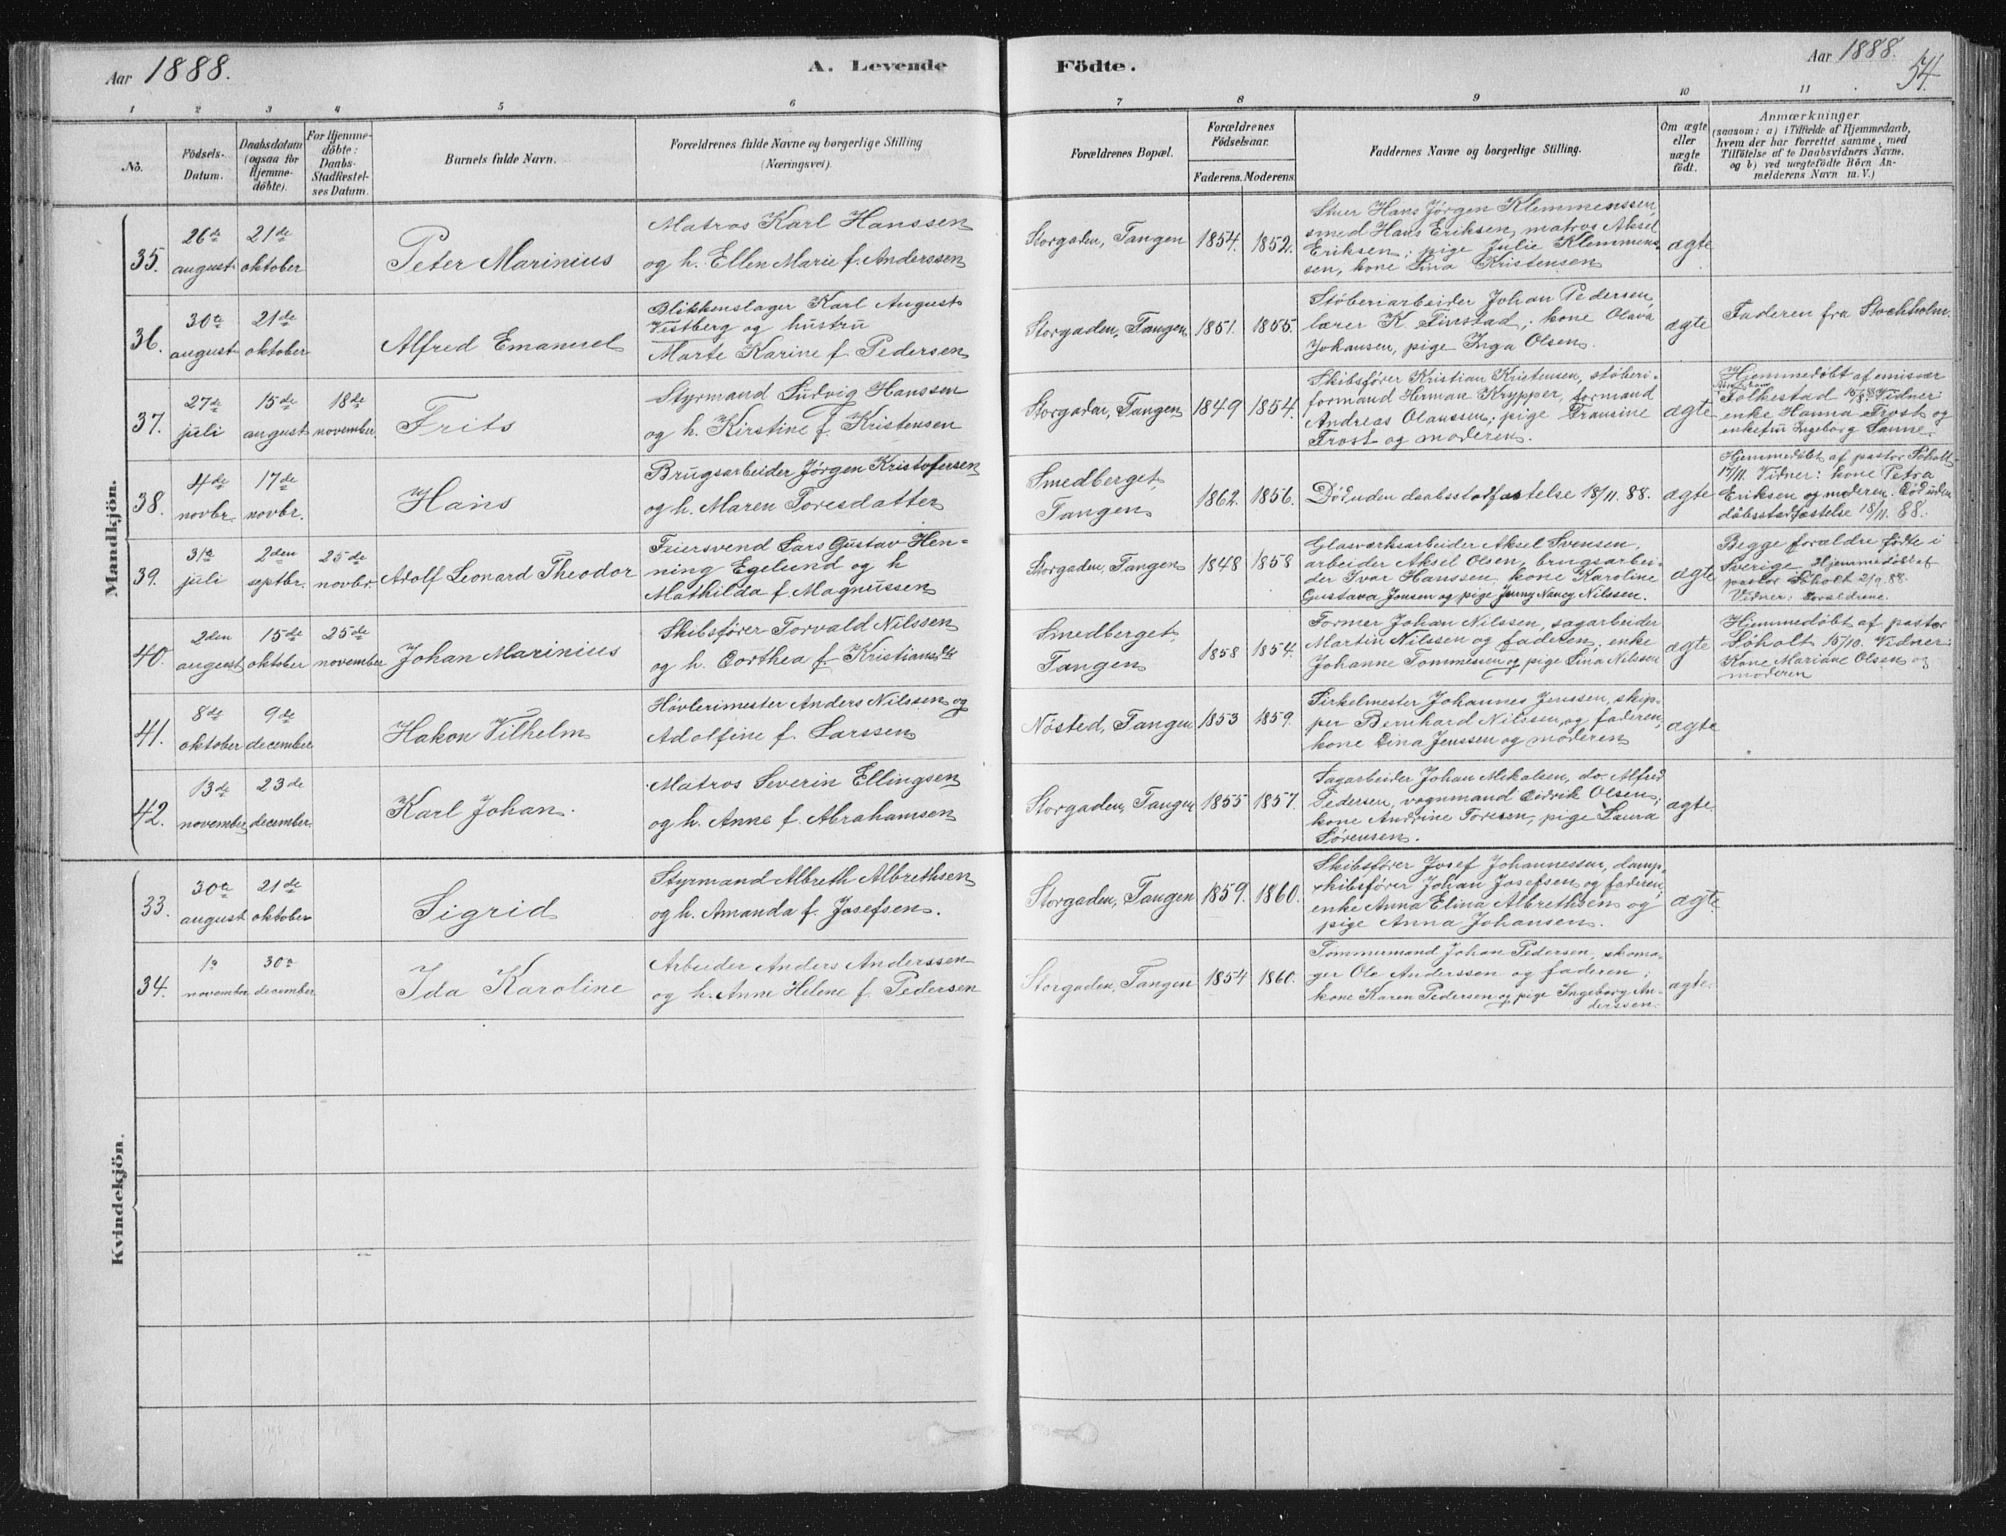 Aar 1888.
A. Levende
Födte.
Aar 1888.
54.
1 2 3 4 5 6 7 8 9 10 11
No.
Födsels-
Datum.
Daabsdatum
(ogsaa for
Hjemme-
döbte).
For Hjemme-
döbte:
Daabs-
Stadfæstel-
ses Datum.
Barnets fulde Navn.
Forældrenes fulde Navne og borgerlige Stilling
(Næringsvei).
Forældrenes Bopæl.
Forældrenes
Födselsaar.
Faderens. Moderens.
Faddernes Navne og borgerlige Stilling.
Om ægte
eller
uægte
födt.
Anmærkninger
(saasom: a) i Tilfælde af Hjemmedaab,
hvem der har forrettet samme, med
Tilföielse af to Daabsvidners Navne.
og b) ved uægtefödte Börn An-
melderens Navn m. V.)
Mandkjön.
35.
26de
august
21de
oktober
Peter Marinius
Matros Karl Hanssen
og h. Ellen Marie f. Anderssen
Storgaden, Tangen
1854. 1852.
Stuer Hans Jørgen Klemmenssen,
smed Hans Eriksen, matros Aksel
Eriksen; pige Julie Klemmens
sen, kone Lina Kristensen
ægte
36.
30te
august
21de
oktober
Alfred Emanuel
Blikkenslager Karl August
Vestberg og hustru
Marte Karine f. Pedersen
Storgaden, Tangen
1851. 1855.
Støberiarbeider Johan Pedersen,
lærer K. Finstad; kone Olava
Johansen, pige Inga Olsen.
ægte
Faderen fra Stockholm.
37.
27de
juli
15de
august
18de
november
Frits
Styrmand Ludvig Hanssen
og h. Kirstine f. Kristensen
Storgaden, Tangen
1849 1854.
Skibsfører Kristian Kristensen, støberi-
formand Herman Krypper, formand
Andreas Olaussen; pige Transine
Trost og moderen.
ægte
Hjemmedøbt af emisær
Folkestad 15/8 88. Vidner:
enke Hanna Trost og
enkefru Ingeborg Sanne.
38.
4de
novbr.
17de
novbr.
Hans
Brugsarbeider Jørgen Kristofersen
og h. Maren Toresdatter
Smedberget,
Tangen
1862. 1856.
Død uden daabsstadfæstelse 18/11. 88.
ægte
Hjemmedøbt af pastor Søholt
17/11. Vidner: kone Petra
Eriksen og moderen. Død uden
dåbsstadfæstelse 18/11. 88.
39.
31te
juli
2den
septbr.
25de
novbr.
Adolf Leonard Theodor
Feiersvend Lars Gustav Hen-
ning Egelund og h
Mathilda f. Magnussen
Storgaden, Tangen
1848 1858
Glasværksarbeider Aksel Svensen,
arbeider Aksel Olsen, brugsarbei-
der Ivar Hanssen, kone Karoline
Gustava Jonsen og pige Jenny Nancy Nilssen.
ægte
Begge forældre fødte i
Sverige. Hjemmedøbt af
pastor Søholt 2/9 88.
Vidner: Forældrene.
40.
2den
august
15de
oktober
25de
november
Johan Marinius
Skibsfører Torvald Nilssen
og h. Dorthea f. Kristiansdtr
Smedberget,
Tangen
1858 1854.
Former Johan Nilssen, sagarbeider
Martin Nilssen og faderen; enke
Johanne Tommessen og pige Lina Nilssen
ægte
Hjemmedøbt af pastor
Søholt 15/10. Vidner:
Kone Mariane Olsen og
moderen
41.
8de
oktober
9de
december
Hakon Vilhelm
Høvlerimester Anders Nilssen og
Adolfine f. Larssen
Nøsted, Tangen
1853 1859.
Sirkelmester Johannes Jenssen, skip-
per Bernhard Nilssen og faderen;
kone Dina Jenssen og moderen
ægte
42.
13de
november
23de
december.
Karl Johan.
Matros Severin Ellingsen
og h. Anne f. Abrahamsen
Storgaden, Tangen
1855 1857.
Sagarbeider Johan Mikalsen, do. Alfred
Pedersen, vognmand Didrik Olsen;
kone Andrine Toresen, pige Laura
Sørensen.
ægte.
Kvindekjön.
33.
30te
august
21de
oktober
Sigrid
Styrmand Albreth Albrethsen
og h. Amanda f. Josefsen.
Storgaden, Tangen
1859. 1860.
Skibsfører Josef Johannessen, damp-
skibsfører Johan Josefsen og faderen;
enke Anna Elina Albrethsen og
pige Anna Johansen.
ægte.
34.
1ste
november
30te
december
Ida Karoline
Arbeider Anders Anderssen
og h. Anne Helene f. Pedersen
Storgaden, Tangen
1854 1860.
Tømmermand Johan Pedersen, skoma-
ger Ole Anderssen og faderen;
kone Karen Pedersen og pige Ingeborg An-
derssen.
ægte.